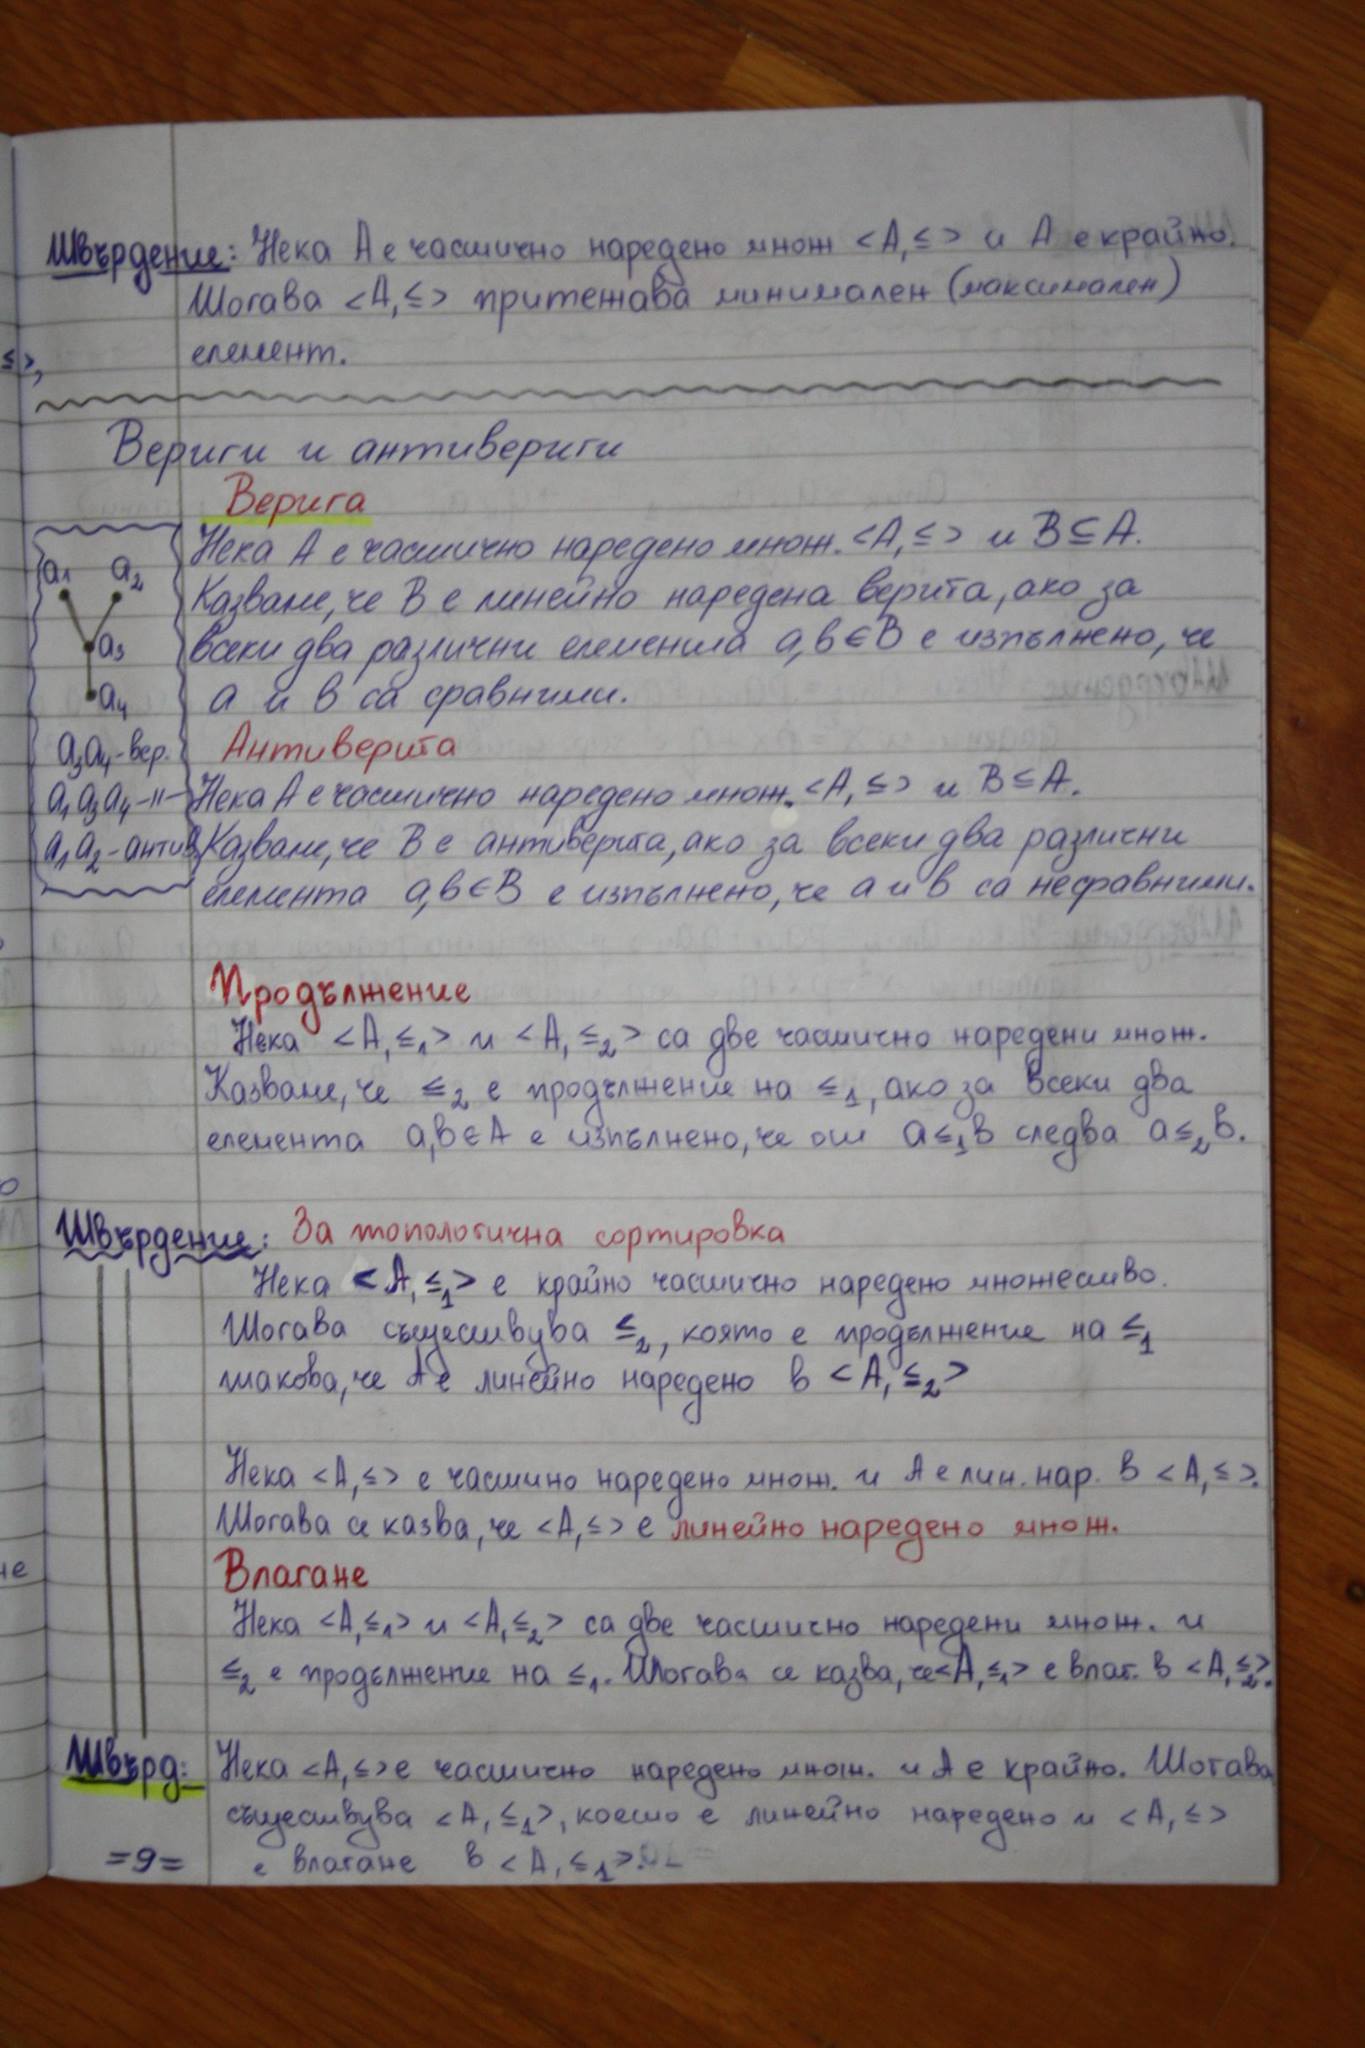 Твърдение: Нека А е частично наредено множ <A,≤> и А е крайно.
Тогава <A,≤> притежава минимален (максимален)
елемент.
≤>,
Вериги и антивериги
Верига
Нека А е частично наредено множ. <A,≤> и B⊆A.
Казваме, че B е линейно наредена верига, ако за
всеки два различни елемента a,b∈B е изпълнено, че
a и b са сравними.
a1 a2
a3
a4
a3a4-вер.
a1a3a4-"-
a1a2-антив.
Антиверига
Нека А е частично наредено множ. <A,≤> и B⊆A.
Казваме, че B е антиверига, ако за всеки два различни
елемента a,b∈B е изпълнено, че a и b са несравними.
Продължение
Нека <A,≤1> и <A,≤2> са две частично наредени множ.
Казваме, че ≤2 е продължение на ≤1, ако за всеки два
елемента a,b∈A е изпълнено, че от a≤1b следва a≤2b.
Твърдение: За топологична сортировка
Нека <A,≤1> е крайно частично наредено множество.
Тогава съществува ≤2, която е продължение на ≤1
такова, че А е линейно наредено в <A,≤2>
Нека <A,≤> е частино наредено множ. и А е лин. нар. в <A,≤>.
Тогава се казва, че <A,≤> е линейно наредено множ.
Влагане
Нека <A,≤1> и <A,≤2> са две частично наредени множ. и
≤2 е продължение на ≤1. Тогава се казва, че <A,≤1> е влаг. в <A,≤2>.
Твърд: Нека <A,≤> е частично наредено множ. и А е крайно. Тогава
съществува <A,≤1>, което е линейно наредено и <A,≤>
е влагане в <A,≤1>.
=9=